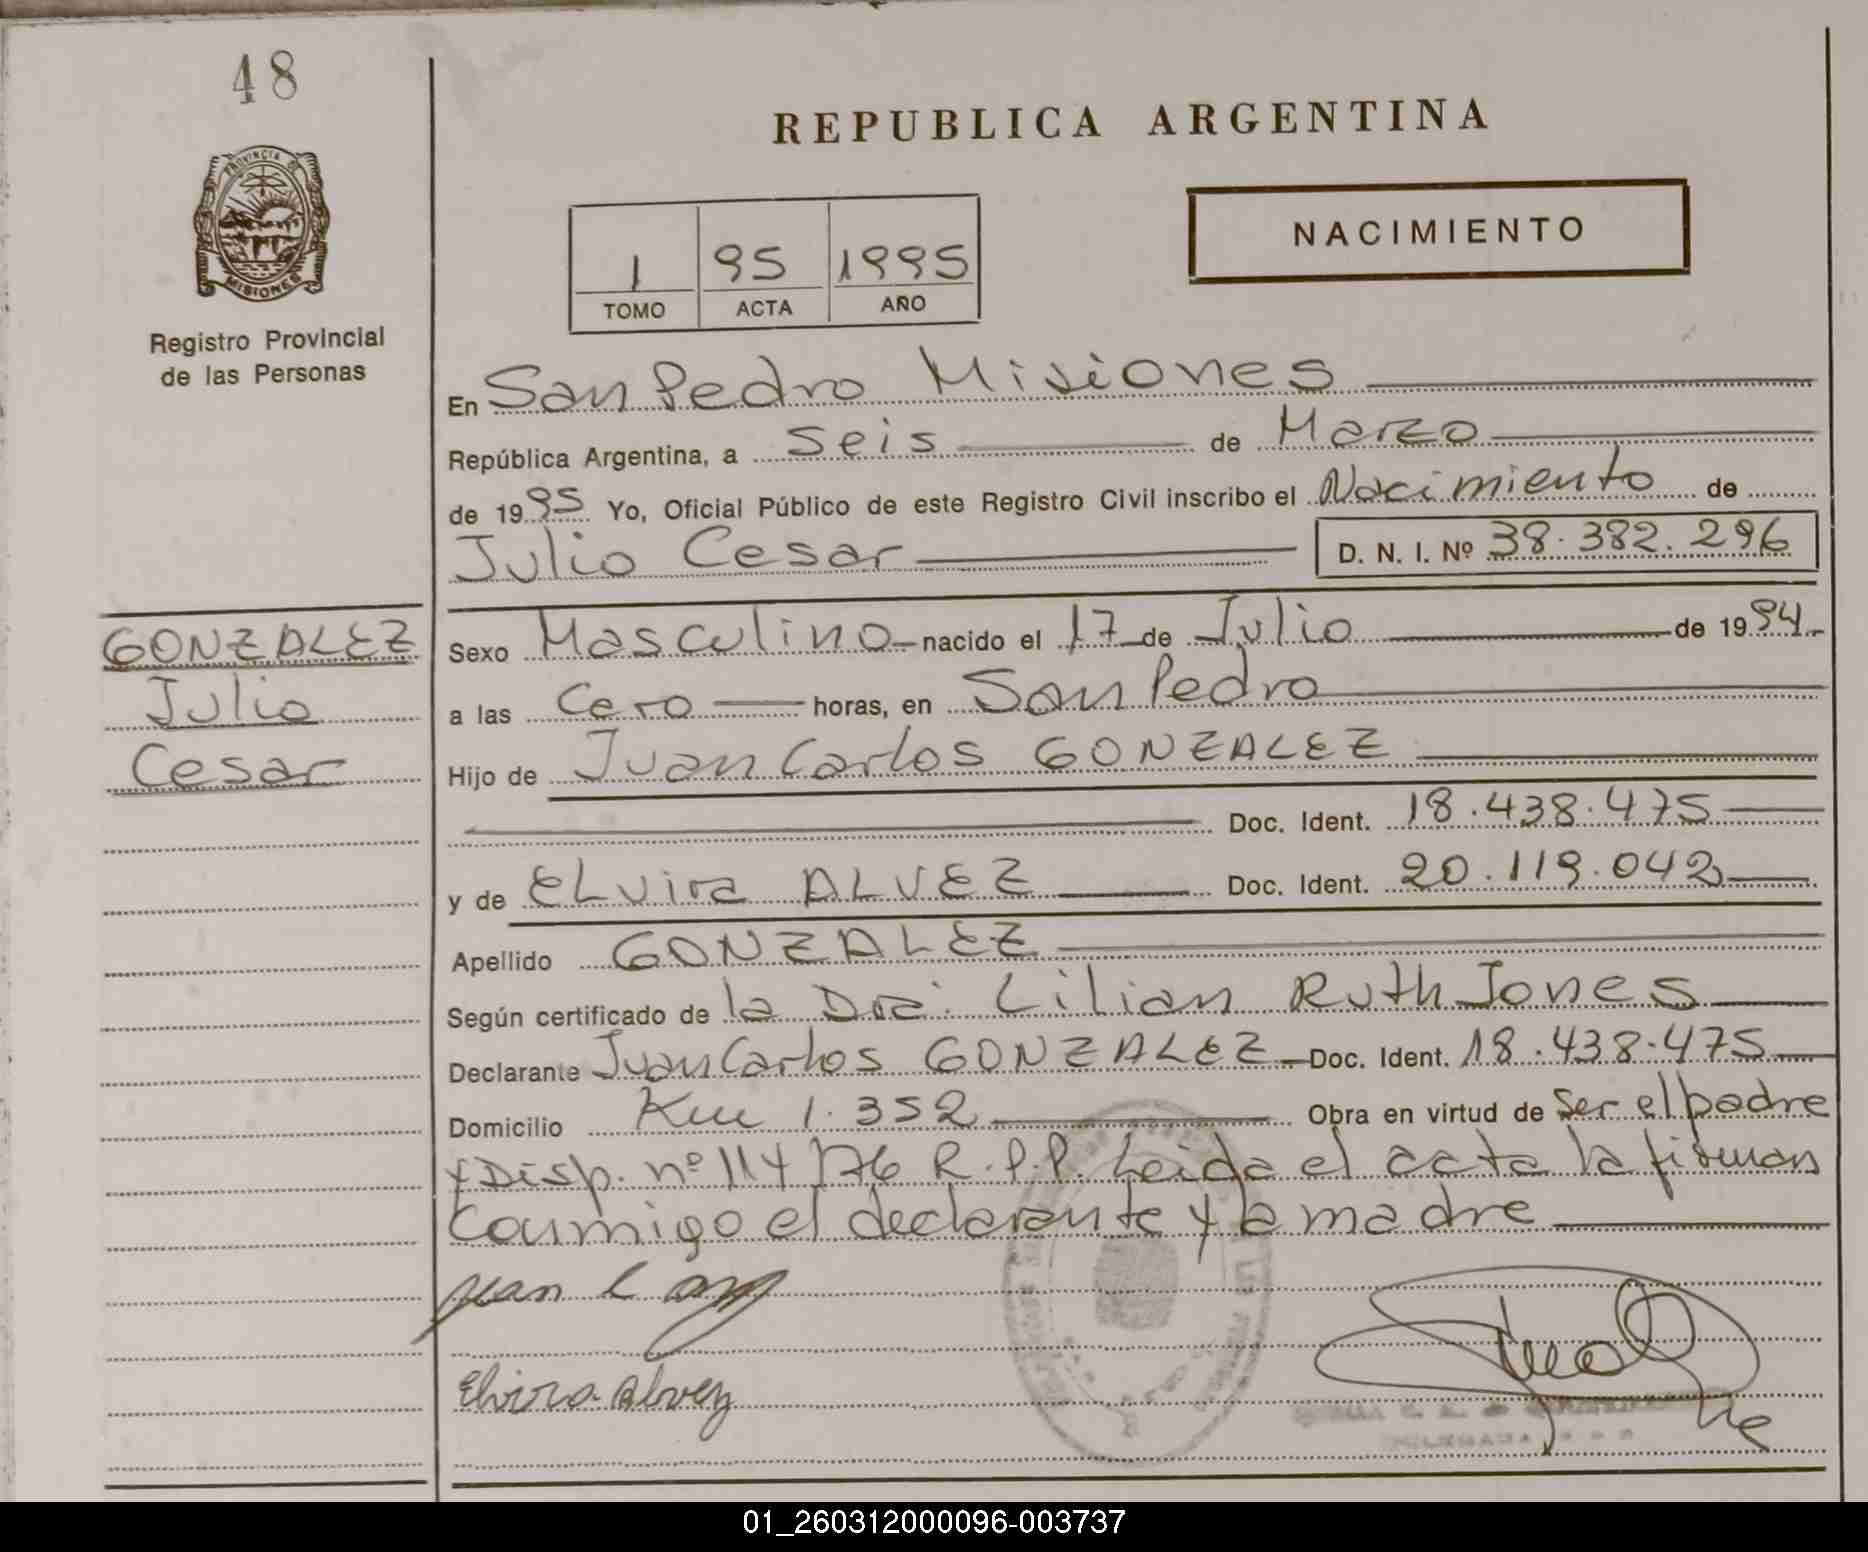 48
REPUBLICA ARGENTINA
PROVINCIA DE
MISIONES
NACIMIENTO
1 95 1995
TOMO ACTA AÑO
Registro Provincial
de las Personas
En San Pedro Misiones
República Argentina, a seis de Marzo
de 1995 Yo, Oficial Público de este Registro Civil inscribo el Nacimiento de
Julio Cesar D. N. I. Nº 38.382.296
GONZALEZ
Julio
Cesar
Sexo Masculino nacido el 17 de Julio de 1994
a las cero horas, en San Pedro
Hijo de Juan Carlos GONZALEZ
Doc. Ident. 18.438.475
y de ELvira ALVEZ Doc. Ident. 20.119.042
Apellido GONZALEZ
Según certificado de la Dra. Lilian Ruth Jones
Declarante Juan Carlos GONZALEZ Doc. Ident. 18.438.475
Domicilio Km 1.352 Obra en virtud de Ser el padre
y Disp. nº 114/76 R.P.P. Leida el acta la firman
conmigo el declarante y la madre
Juan C
Elvira Alvez
01_260312000096-003737